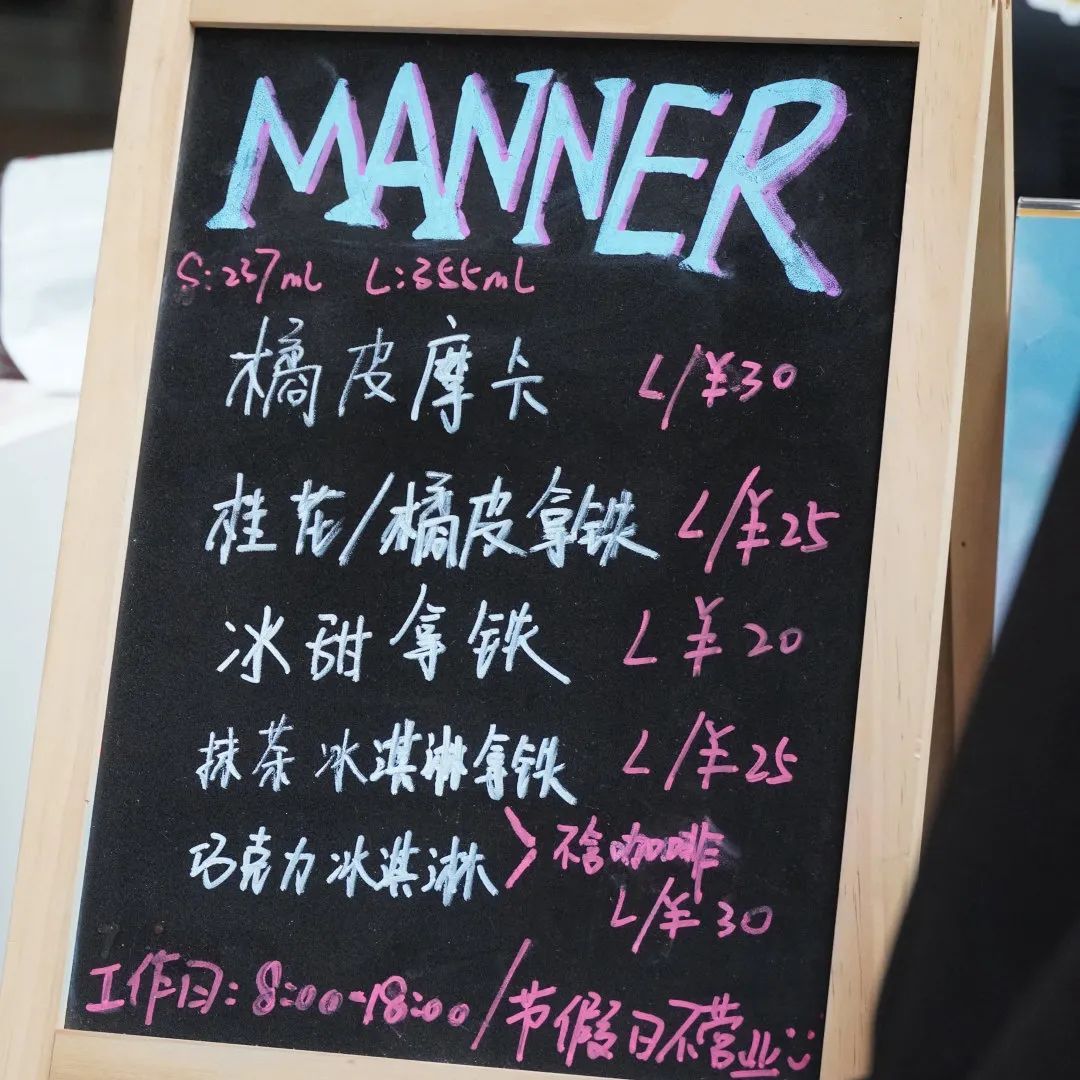 MANNER
S:237mL L:355mL
橘皮摩卡 L/¥30
桂花/橘皮拿铁 L/¥25
冰甜拿铁 L ¥20
抹茶冰淇淋拿铁 L/¥25
巧克力冰淇淋 > 不含咖啡
L/¥30
工作日:8:00-18:00/节假日不营业